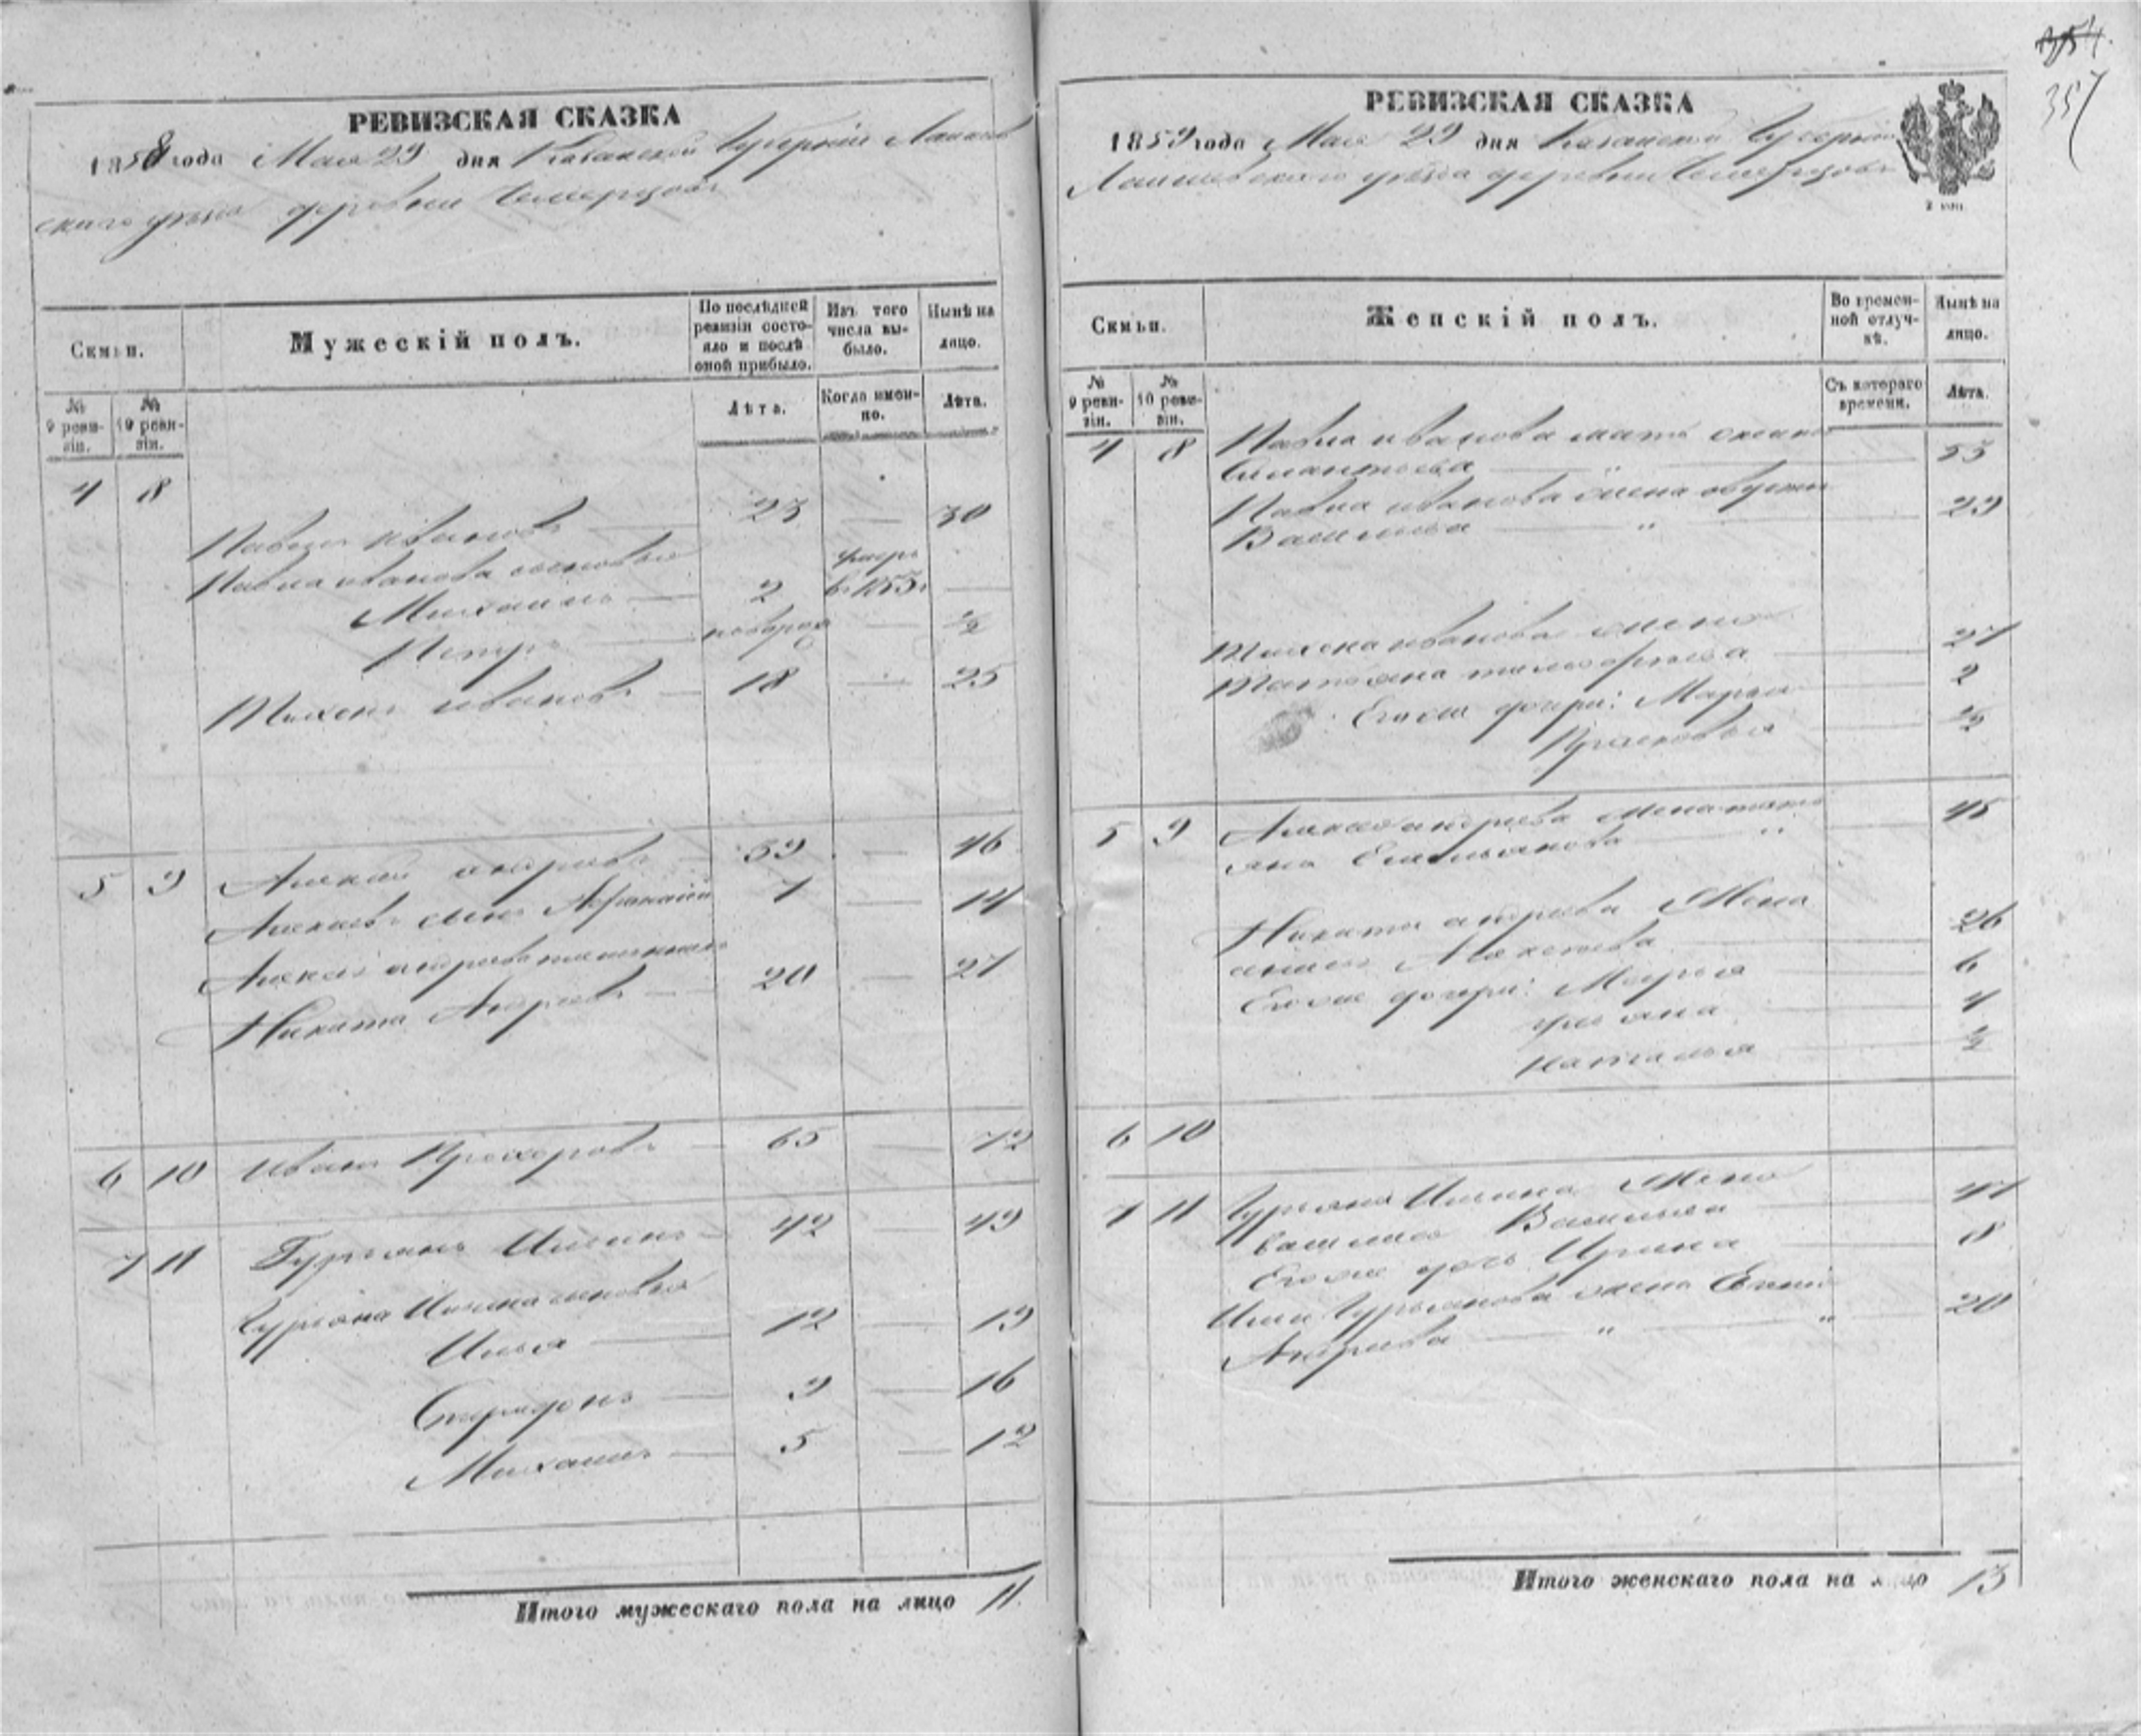 РЕВИЗСКАЯ СКАЗКА
1858 года Мая 29 дня Казанской Губерніи Лаишев
скаго уѣзда деревни
Семьи.
Мужескій полъ.
По послѣдней ревизіи состояло и послѣ оной прибыло.
Изъ того числа выбыло.
Нынѣ на лицо.
№ 9 ревизіи.
№ 10 ревизіи.
Лѣта.
Когда именно.
Лѣта.
4 8
Павелъ Ивановъ 23 — 30
Павла Иванова сыновья
Михаилъ 2 умеръ въ 1853 г —
Петръ новорож — ½
Тихонъ Ивановъ 18 — 25
5 9 Алексей Андреевъ 39 — 46
Алексея сынъ Афанасій 7 — 14
Алексея Андреева племянникъ
Никита Андреевъ 20 — 27
6 10 Иванъ Прохоровъ 65 — 72
7 11 Гурьянъ Ильинъ 42 — 49
Гурьяна Ильина сыновья
Илья 12 — 19
Спиридонъ 9 — 16
Михаилъ 5 — 12
Итого мужескаго пола на лицо 11.
354.
357
РЕВИЗСКАЯ СКАЗКА
1858 года Мая 29 дня Казанской Губерніи
Лаишевскаго уѣзда деревни
2 коп.
Семьи.
Женскій полъ.
Во временной отлучкѣ.
Нынѣ на лицо.
№ 9 ревизіи.
№ 10 ревизіи.
Съ котораго времени.
Лѣта.
4 8 Павла Иванова мать
55
Павла Иванова жена
Васильева " 29
Тихона Иванова жена
Татьяна 27
Его же дочери: Марья 2
Прасковья ½
5 9 Алексея Андреева жена Тать
яна Емельянова " 45
Никиты Андреева жена
Алексеева 26
Его же дочери: Марья 6
Ульяна 4
Наталья ½
6 10
7 11 Гурьяна Ильина жена
Василиса Васильева 47
Его же дочь Ирина 8
Ильи Гурьянова жена
Андреева " " 20
Итого женскаго пола на лицо 13